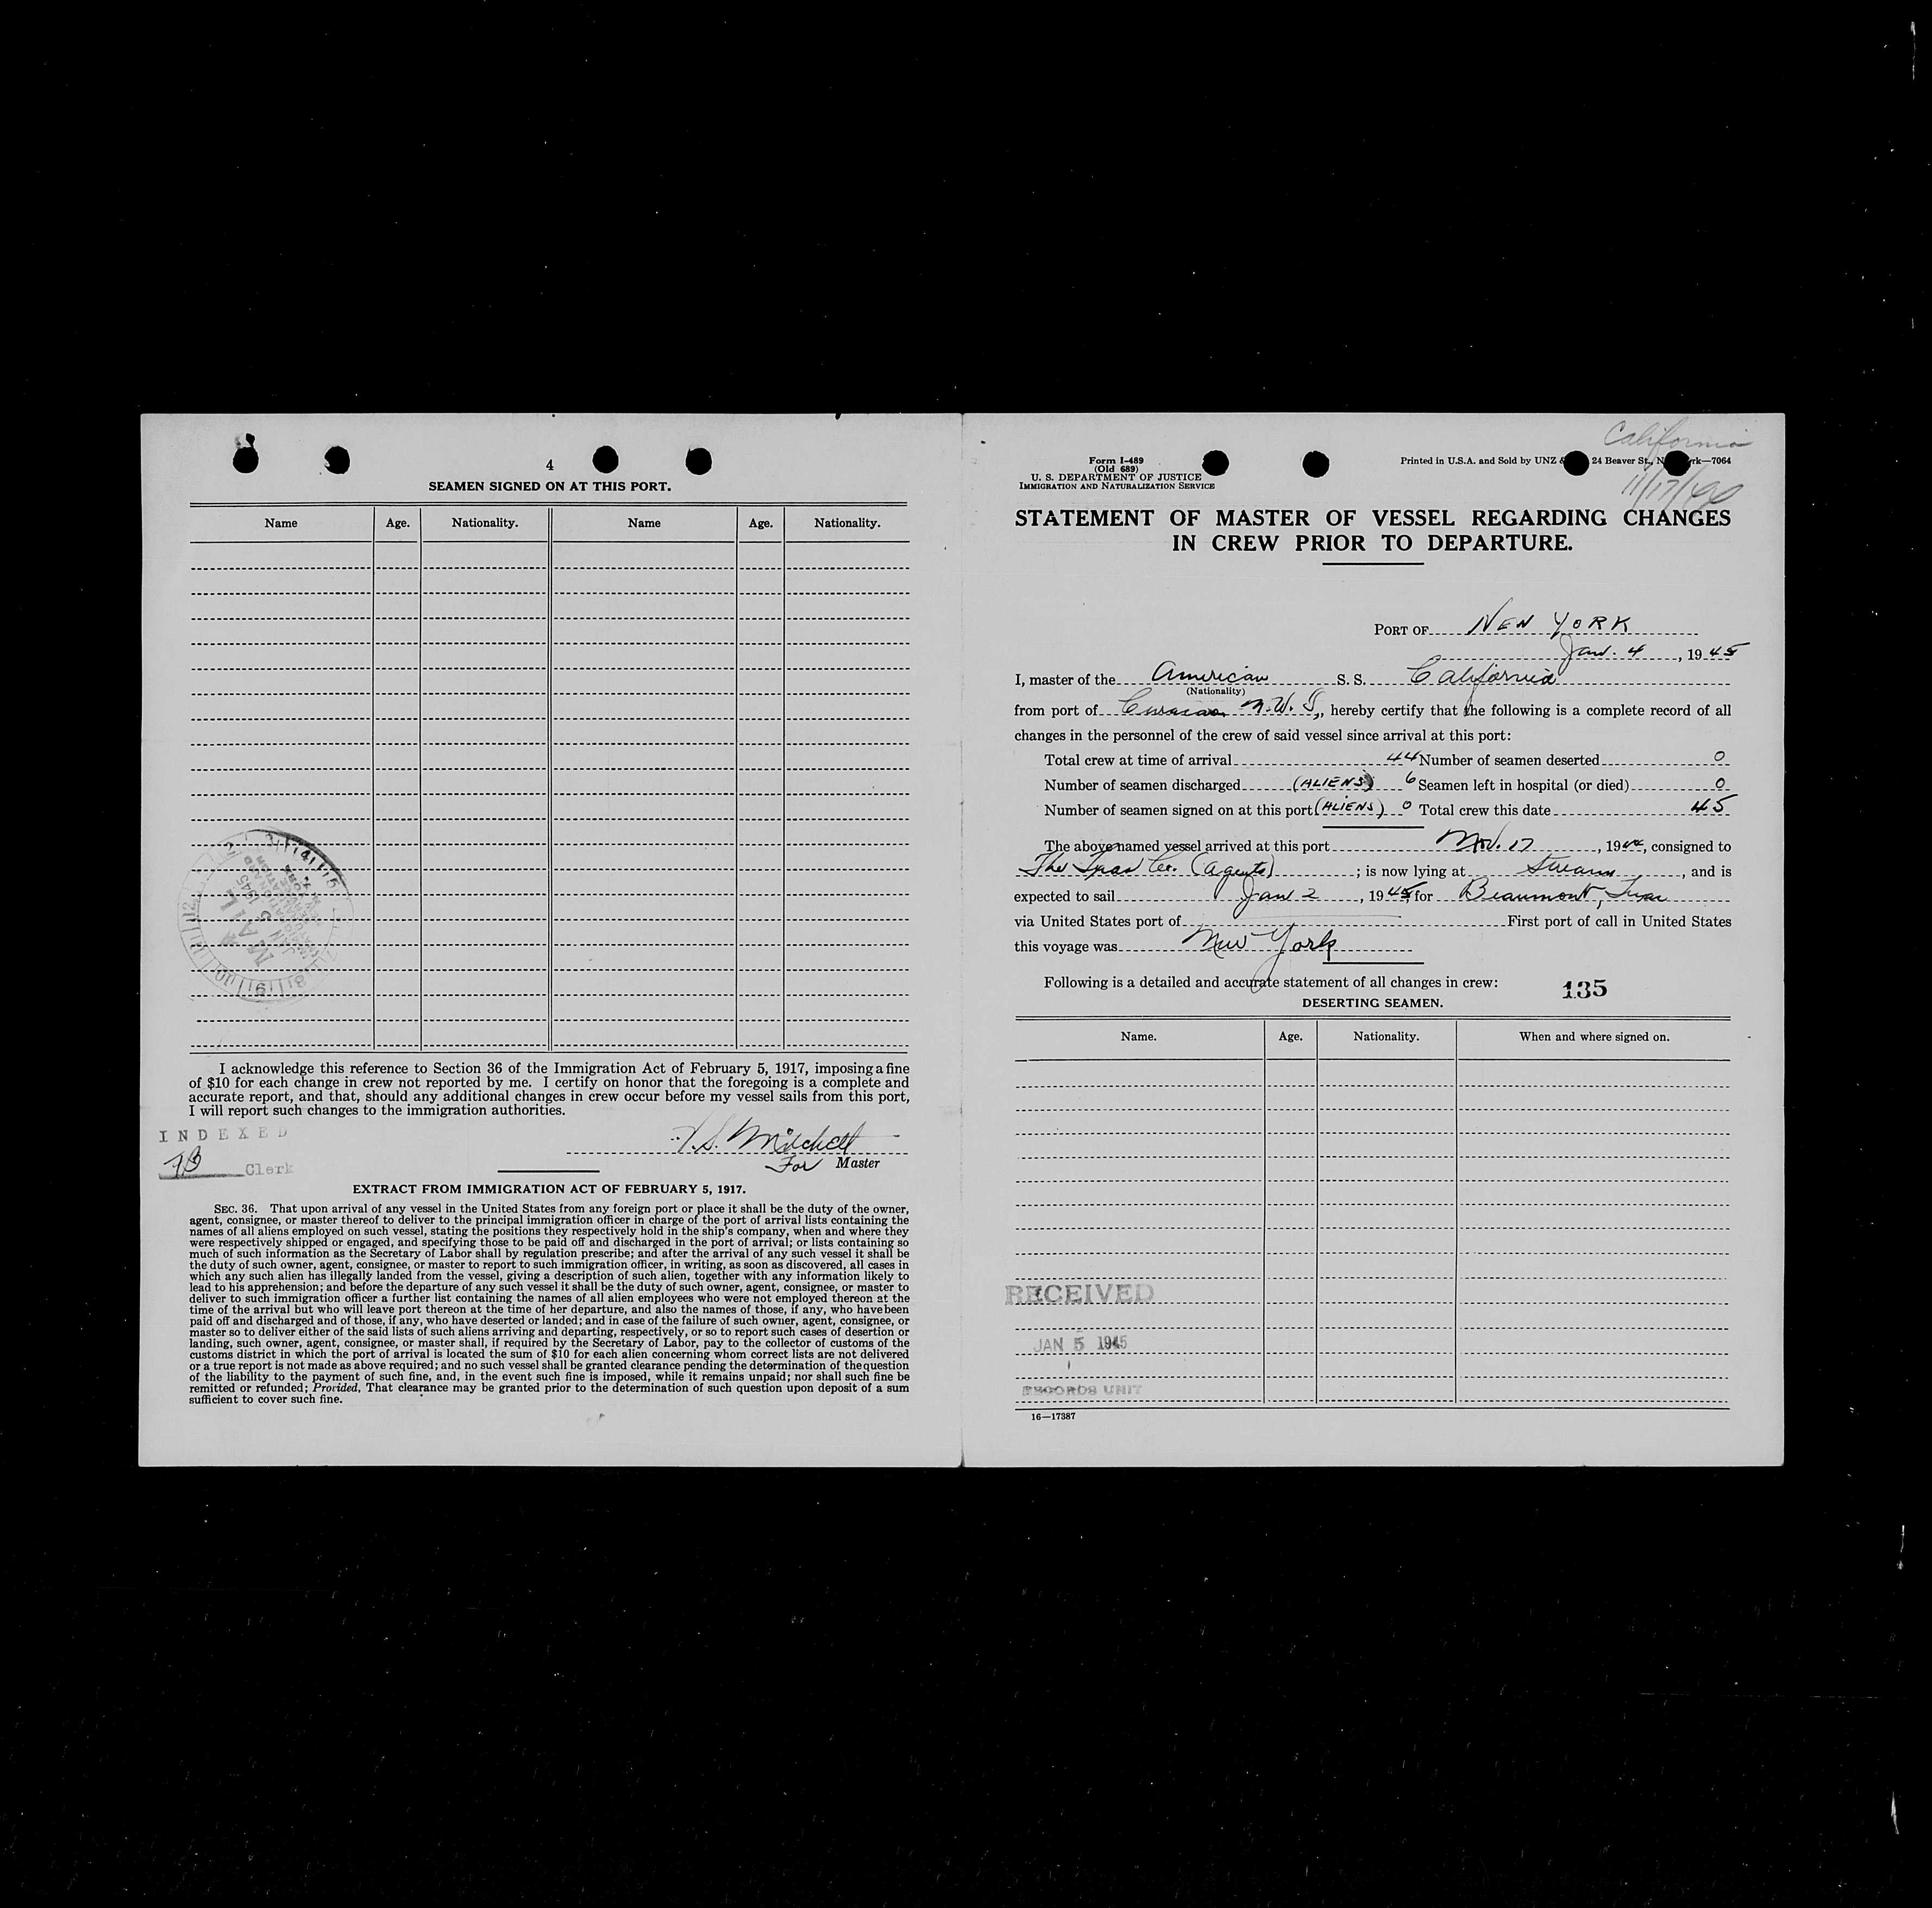 4
SEAMEN SIGNED ON AT THIS PORT.
Name Age. Nationality. Name Age. Nationality.
I acknowledge this reference to Section 36 of the Immigration Act of February 5, 1917, imposing a fine
of $10 for each change in crew not reported by me. I certify on honor that the foregoing is a complete and
accurate report, and that, should any additional changes in crew occur before my vessel sails from this port,
I will report such changes to the immigration authorities.
INDEXED
Clerk
Mitchell
For Master
EXTRACT FROM IMMIGRATION ACT OF FEBRUARY 5, 1917.
SEC. 36. That upon arrival of any vessel in the United States from any foreign port or place it shall be the duty of the owner,
agent, consignee, or master thereof to deliver to the principal immigration officer in charge of the port of arrival lists containing the
names of all aliens employed on such vessel, stating the positions they respectively hold in the ship's company, when and where they
were respectively shipped or engaged, and specifying those to be paid off and discharged in the port of arrival; or lists containing so
much of such information as the Secretary of Labor shall by regulation prescribe; and after the arrival of any such vessel it shall be
the duty of such owner, agent, consignee, or master to report to such immigration officer, in writing, as soon as discovered, all cases in
which any such alien has illegally landed from the vessel, giving a description of such alien, together with any information likely to
lead to his apprehension; and before the departure of any such vessel it shall be the duty of such owner, agent, consignee, or master to
deliver to such immigration officer a further list containing the names of all alien employees who were not employed thereon at the
time of the arrival but who will leave port thereon at the time of her departure, and also the names of those, if any, who have been
paid off and discharged and of those, if any, who have deserted or landed; and in case of the failure of such owner, agent, consignee, or
master so to deliver either of the said lists of such aliens arriving and departing, respectively, or so to report such cases of desertion or
landing, such owner, agent, consignee, or master shall, if required by the Secretary of Labor, pay to the collector of customs of the
customs district in which the port of arrival is located the sum of $10 for each alien concerning whom correct lists are not delivered
or a true report is not made as above required; and no such vessel shall be granted clearance pending the determination of the question
of the liability to the payment of such fine, and, in the event such fine is imposed, while it remains unpaid; nor shall such fine be
remitted or refunded; Provided, That clearance may be granted prior to the determination of such question upon deposit of a sum
sufficient to cover such fine.
California
Form I-489
(Old 689)
U. S. DEPARTMENT OF JUSTICE
IMMIGRATION AND NATURALIZATION SERVICE
Printed in U.S.A. and Sold by UNZ & 24 Beaver St., N rk—7064
11/17/44
STATEMENT OF MASTER OF VESSEL REGARDING CHANGES
IN CREW PRIOR TO DEPARTURE.
PORT OF NEW YORK
Jan. 4, 1945
I, master of the American S. S. California
(Nationality)
from port of Curacao N.W.I., hereby certify that the following is a complete record of all
changes in the personnel of the crew of said vessel since arrival at this port:
Total crew at time of arrival 44 Number of seamen deserted 0
Number of seamen discharged (ALIENS) 6 Seamen left in hospital (or died) 0
Number of seamen signed on at this port (ALIENS) 0 Total crew this date 45
The above named vessel arrived at this port Nov. 17, 1944, consigned to
The Texas Co. (Agents); is now lying at , and is
expected to sail Jan 2, 1945, for Beaumont, Texas
via United States port of First port of call in United States
this voyage was New York
Following is a detailed and accurate statement of all changes in crew:
135
DESERTING SEAMEN.
Name. Age. Nationality. When and where signed on.
RECEIVED
JAN 5 1945
RECORDS UNIT
16—17387